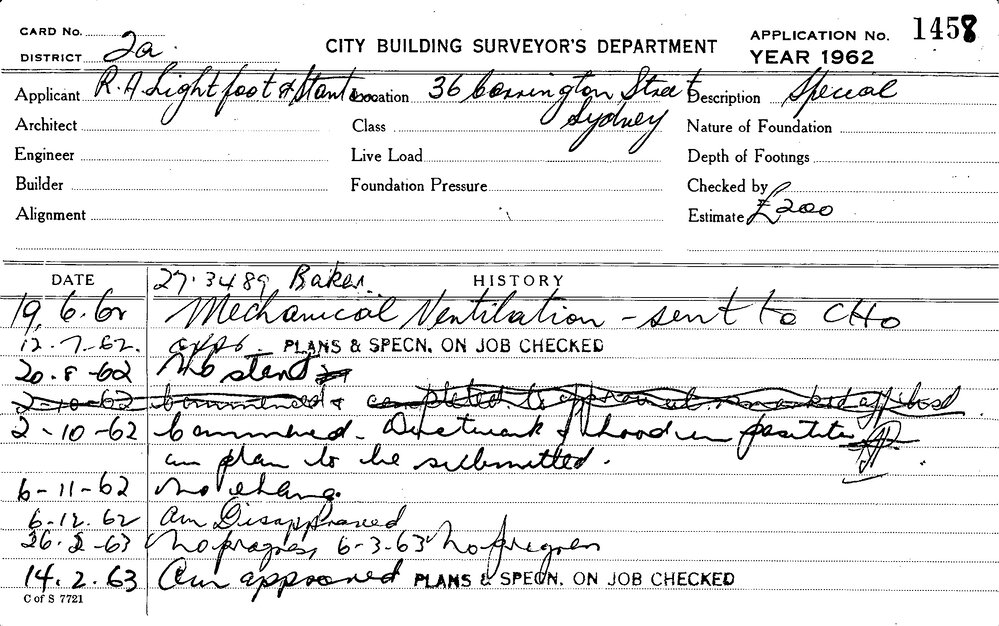 CARD No.
DISTRICT 2a
CITY BUILDING SURVEYOR'S DEPARTMENT
APPLICATION No. 1458
YEAR 1962
Applicant R. A Lightfoot & Stant Location 36 Carrington Street Description Special
Sydney
Architect Class Nature of Foundation
Engineer Live Load Depth of Footings
Builder Foundation Pressure Checked by
Alignment Estimate £200
DATE 27.3489 Baker. HISTORY
19.6.62 Mechanical Ventilation - sent to CHo
12.7.62. PLANS & SPECN. ON JOB CHECKED
20.8-62 No start
2-10-62 commenced & completed to approved
2-10-62 Commenced. Ductwork & hood in position
am plan to be submitted.
6-11-62 No change
6-12.62 Am Disapproved
26.2-63 No progress 6-3-63 No progress
14.2.63 Am approved PLANS & SPECN. ON JOB CHECKED
C of S 7721